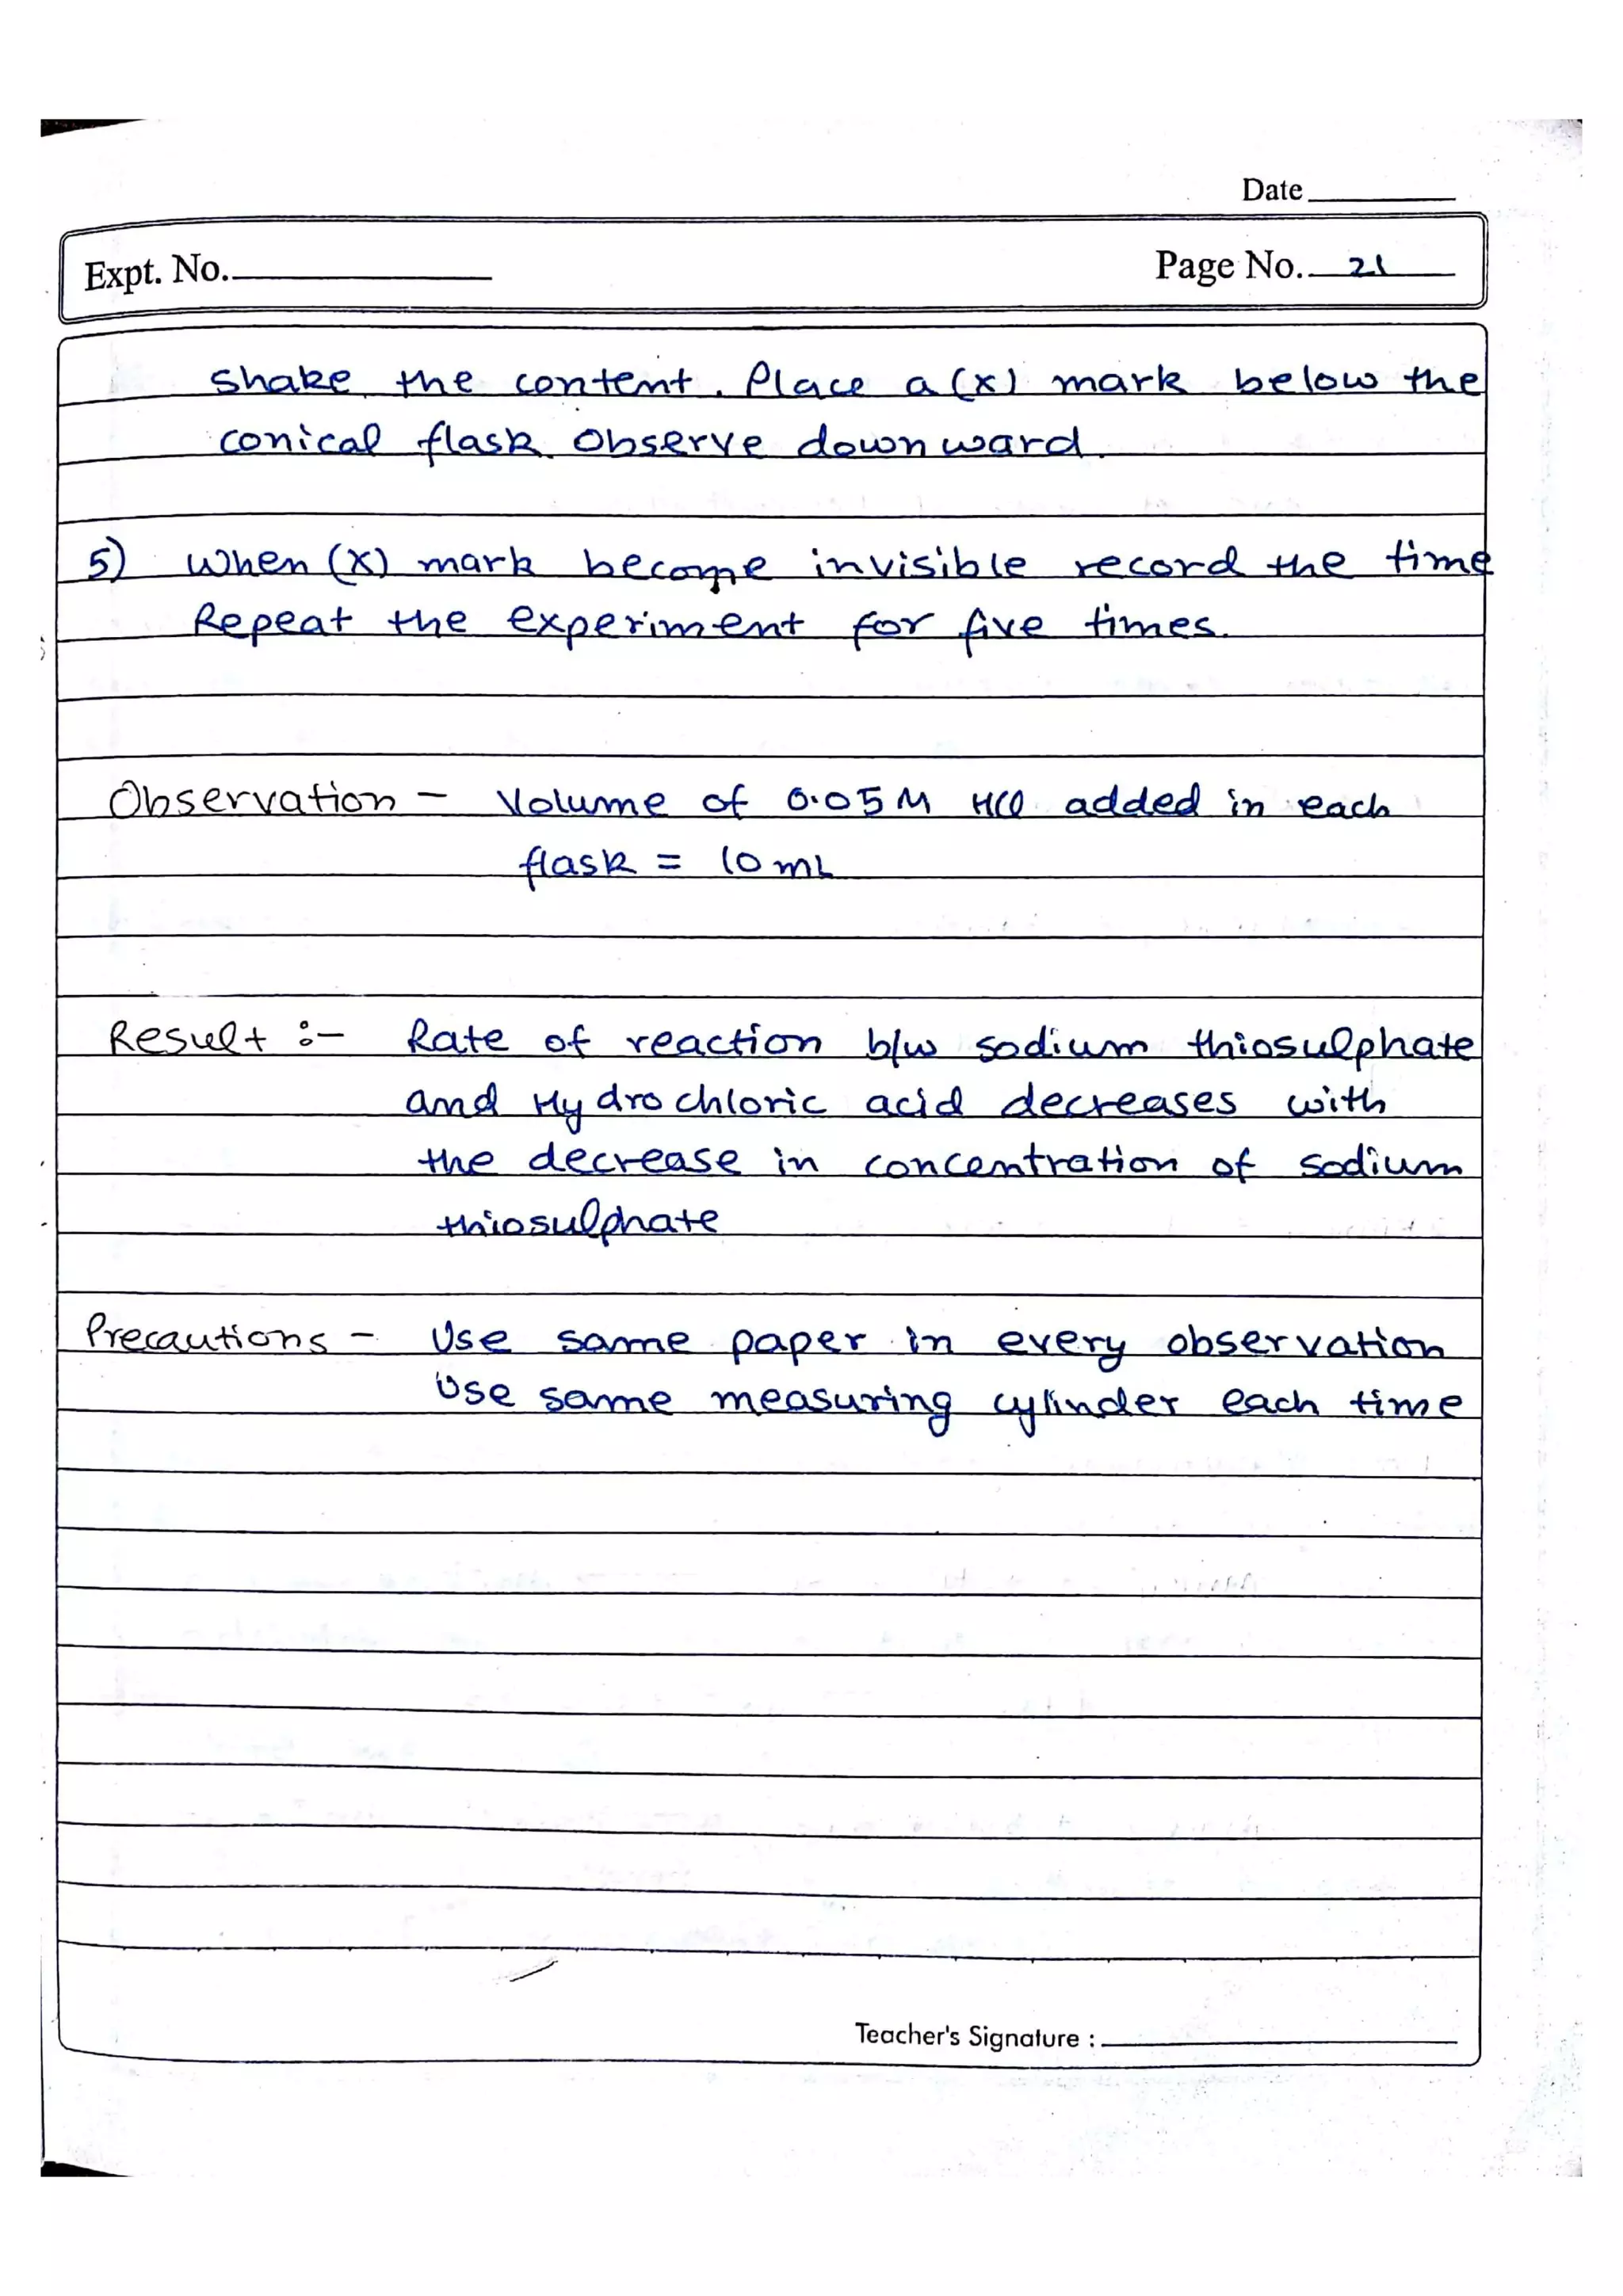 Date
Expt. No. Page No. 21
Shake the content. Place a (x) mark below the
conical flask. Observe downward.
5) When (x) mark become invisible record the time
Repeat the experiment for five times.
Observation - Volume of 0.05 M HCl added in each
flask = 10 mL
Result :- Rate of reaction b/w sodium thiosulphate
and Hydrochloric acid decreases with
the decrease in concentration of sodium
thiosulphate
Precautions - Use same paper in every observation
Use same measuring cylinder each time
Teacher's Signature :